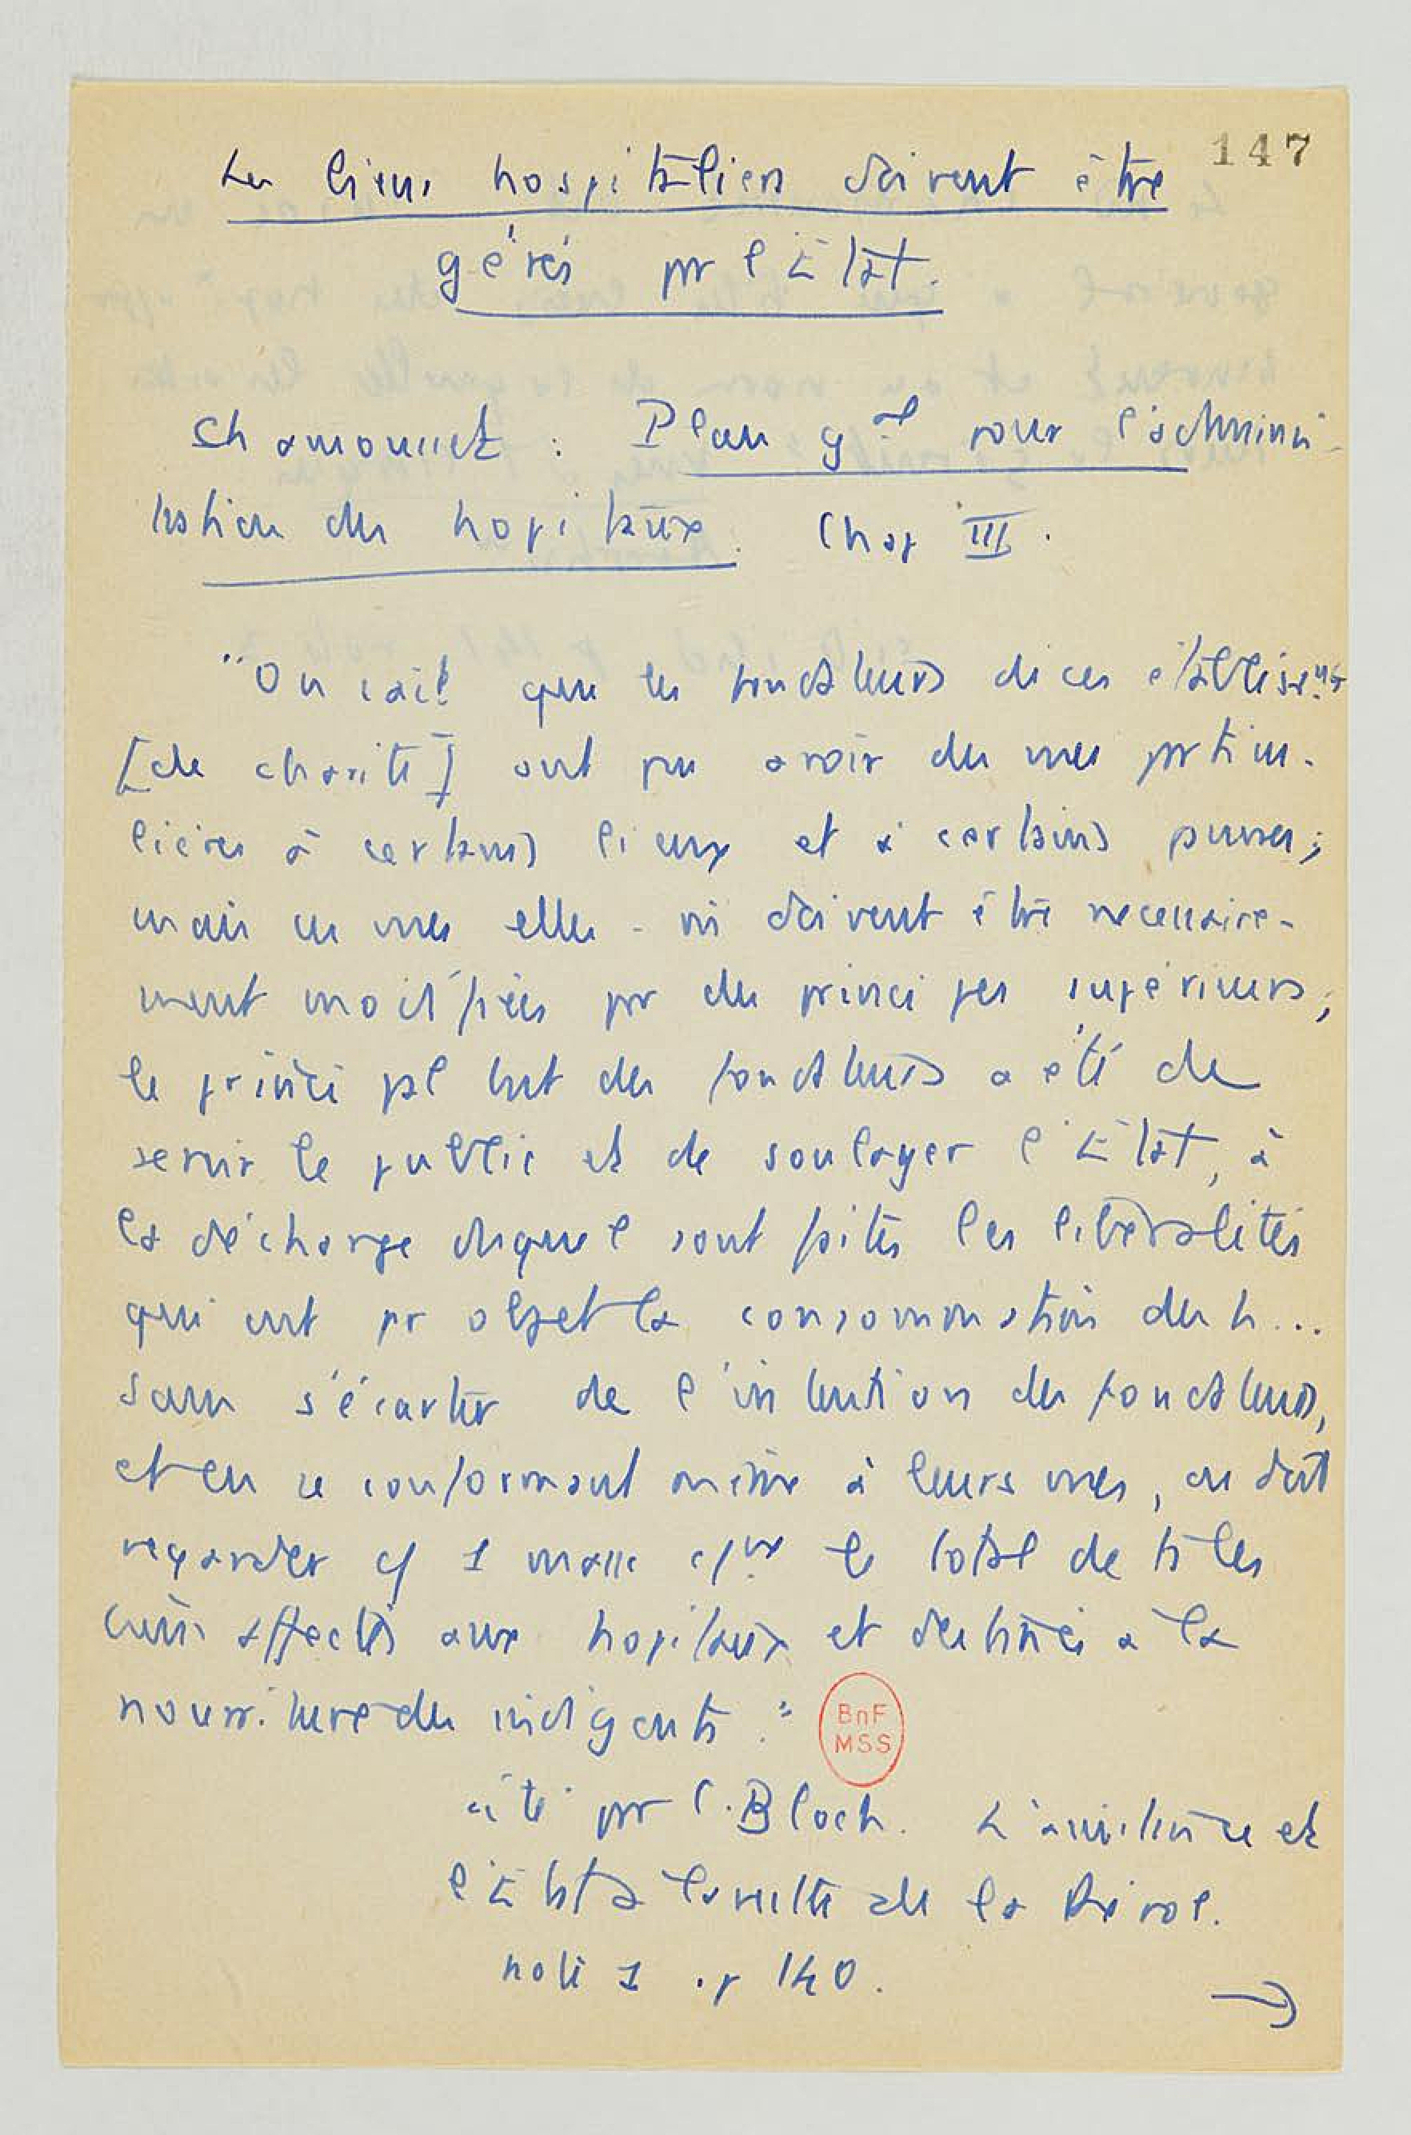 147
Les biens hospitaliers doivent être
gérés pr l'État.
Chamousset : Plan gal pour l'adminis-
tration des hopitaux. Chap III.
"On sait que les fondateurs de ces établissemts
[de charité] ont pu avoir des vues particu-
lières à certains lieux et à certains pauvres ;
mais ces vues elles-mêmes doivent être necessaire-
ment modifiées par des principes supérieurs ;
le principal but des fondateurs a été de
servir le public et de soulager l'État, à
la décharge duquel sont faites les libéralités
qui ont pr objet la consommation des h...
Sans s'écarter de l'intention des fondateurs,
et en se conformant même à leurs vues, on doit
regarder cf 1 masse le total de ts les
biens affectés aux hopitaux et destinés à la
nourriture des indigents."
BnF
MSS
cité par C. Bloch. L'assistance et
l'État à la veille de la Révol.
note 1 . p 140.
→